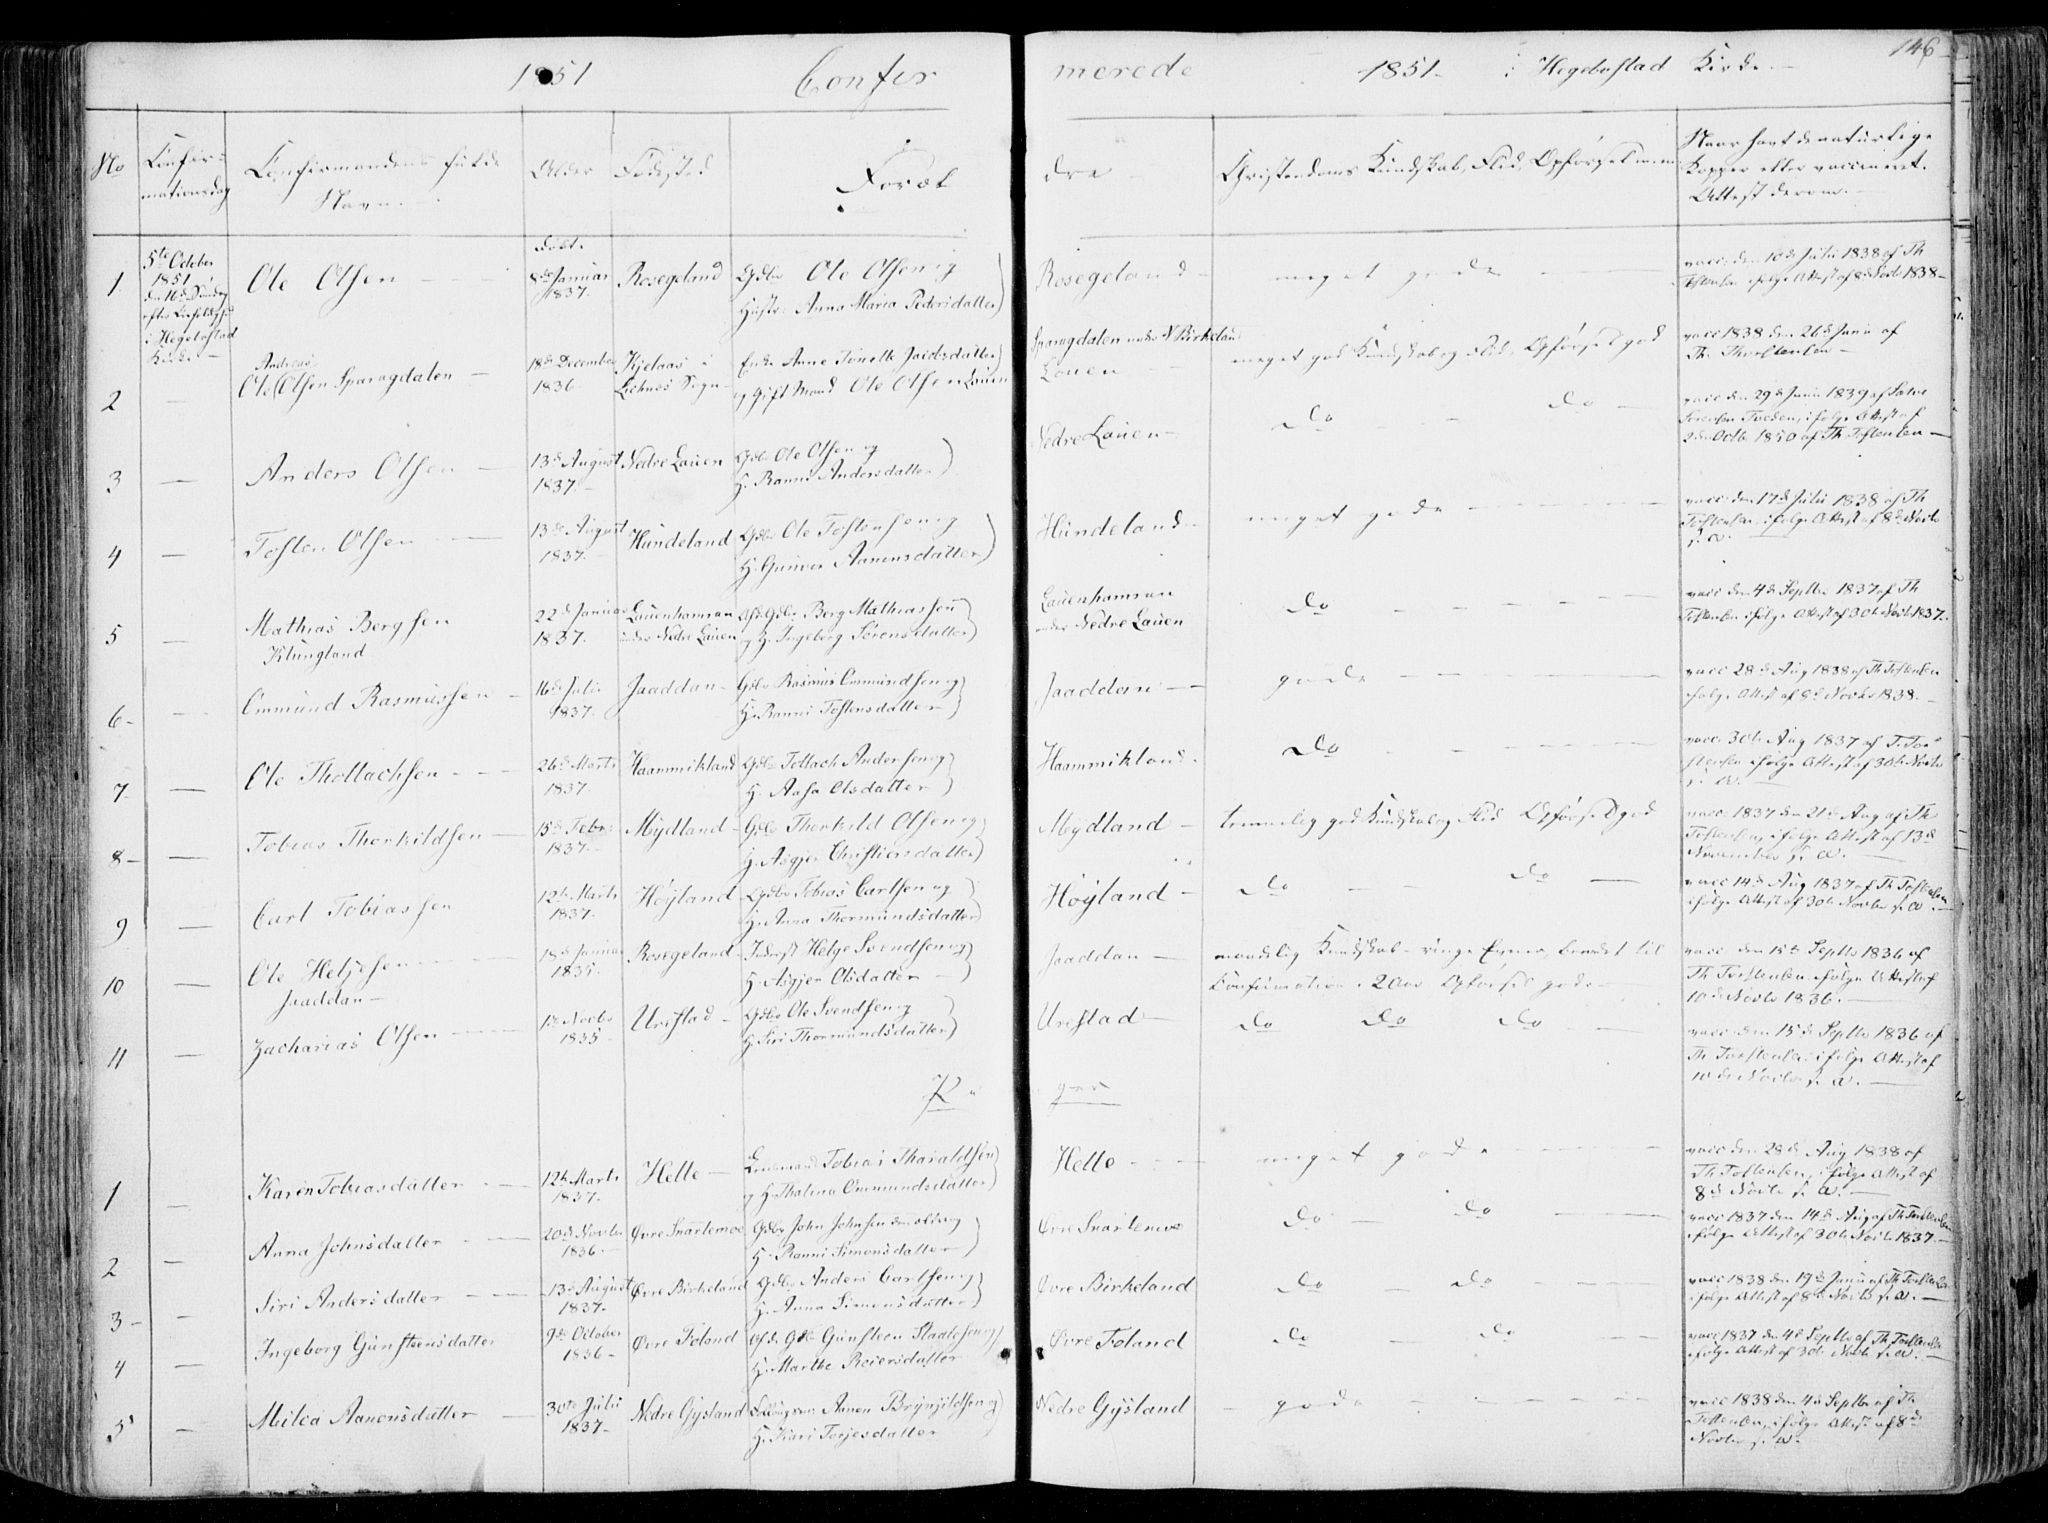 1851 Confir merede 1851 i Hegebostad Kirke 146
No Confirmationsdag Confirmandens fulde Navn. Alder Fødested Foræl dre Christendoms Kundskab, Flid, Opførsel m.m. Naar havt de naturlige Kopper eller vaccineret. Attest derom.
5te October 1851 den 16de Søndag i Hegebostad Kirke
1 Ole Olsen født 8de Januar 1837. Rosegeland Gdbr Ole Olsen og Hustr: Anna Maria Pedersdatter Rosegeland meget gode vacc: den 10de Julii 1838 af Th Tostensen ifølge Attest af 8de Novbr 1838
2 Ole Andreas Olsen Sparagdalen 18de December 1836 Kjelaas i Sogn Enke Anne Tonette Jacobsdatter og Gift Mand Ole Olsen Lauen Sparagdalen under N Birkeland Lauen meget god Kundskab og Flid, Opførsel god vacc 1838 den 26de Junii af Th.
3 Anders Olsen 13de August 1837. Nedre Lauen Gdbr Ole Olsen og H. Ranni Andersdatter Nedre Lauen Do Do vacc den 29de Junii 1839 af ifølge Attest af 2den Octbr 1850 af Th Tostensen
4 Tosten Olsen 13de August 1837. Hundeland Gdbr Ole Tostensen og H. Gunvor Aanensdatter Hundeland meget gode vacc: den 17de Julii 1838 af Th Tostensen ifølge Attest af 8de Novbr s. a.
5 Mathias Bergsen Klungland 22de Januar 1837. Lauenhamran under Nedre Lauen Gdbr Berg Mathiassen og H. Ingeborg Sørensdatter Lauenhamran under Nedre Lauen Do vacc den 4de Septbr 1837 af Th Tostensen ifølge Attest af 30te Novbr 1837.
6 Ommund Rasmussen 16de Julii 1837. Jaaddan Gdbr Rasmus Ommundsen og H. Ranni Tostensdatter Jaaddan gode vacc 28de Aug 1838 af Th Tostensen ifølge Attest af 8de Novbr 1838.
7 Ole Thollachsen 26de Marts 1837. Haammikland Gdbr Tollach Andersen og H. Aasa Olsdatter Haammikland Do vacc. 30te Aug 1837 af T. Tostensen ifølge Attest af 30te Novbr s. a.
8 Tobias Thorkildsen 15de Febr: 1837. Mydland Gdbr Thorkild Olsen og H. Asgjer Christiensdatter Mydland temmelig god Kundskab og Flid Opførsel god vacc 1837 den 21de Aug af Th Tostensen, ifølge Attest af 13de November s. a.
9 Carl Tobiassen 12te Marts 1837. Høyland Gdbr Tobias Carlsen og H. Anna Thormundsdatter Høyland Do Do vacc 14de Aug 1837 af Th Tostensen ifølge Attest af 30te Novbr s. a.
10 Ole Heljesen Jaaddan 18de Januar 1835. Rosegeland Inderst Helge Svendsen og H. Asgjer Olsdatter Jaaddan maadelig Kundskab ringe Evner, beredet til Confirmation i 2 Aar Opførsel gode vacc den 15de Septbr 1836 af Th Torstensen ifølge Attest af 10de Novbr 1836.
11 Zacharias Olsen 1ste Novbr 1835 Urestad Gdbr Ole Svendsen og H. Siri Thormundsdatter Urestad Do Do Do vacc: den 15de Septbr 1836 af Th Torstensen ifølge Attest af 10de Novbr s. a.
Pi ger
1 Karen Tobiasdatter 12te Marts 1837. Helle Lensmand Tobias Tharaldsen og H. Thalina Ommundsdatter Helle meget gode vacc den 28de Aug 1838 af Th. Tostensen, ifølge Attest af 8de Novbr s. a.
2 Anna Johnsdatter 20de Novbr 1836. Øvre Snartemoe Gdbr John Johnsen den ældre og H. Ranni Simonsdatter Øvre Snartemoe Do Do vacc 1837 den 14de Aug af Th Torstensen ifølge Attest af 30te Novbr 1837.
3 Siri Andersdatter 13de August 1837. Øvre Birkeland Gdbr Anders Carlsen og H. Anna Simonsdatter Øvre Birkeland Do Do vacc 1838 den 19de Junii af Th Torstensen ifølge Attest af 8de Novbr s. a.
4 Ingeborg Gunsteensdatter 9de October 1836 Øvre Foland Gdbr Gunsteen Staalesen og H. Marthe Reiersdatter Øvre Foland Do Do vacc 1837 den 4de Septbr af Th Torstensen ifølge Attest af 30te Novbr s. a.
5 Milca Aanensdatter 30te Julii 1837. Nedre Gysland Aanen Brynjildsen og H. Kari Torjesdatter Nedre Gysland gode vacc 1838 den 4de Septbr af Th Tostensen, ifølge Attest af 8de Novbr s. a.